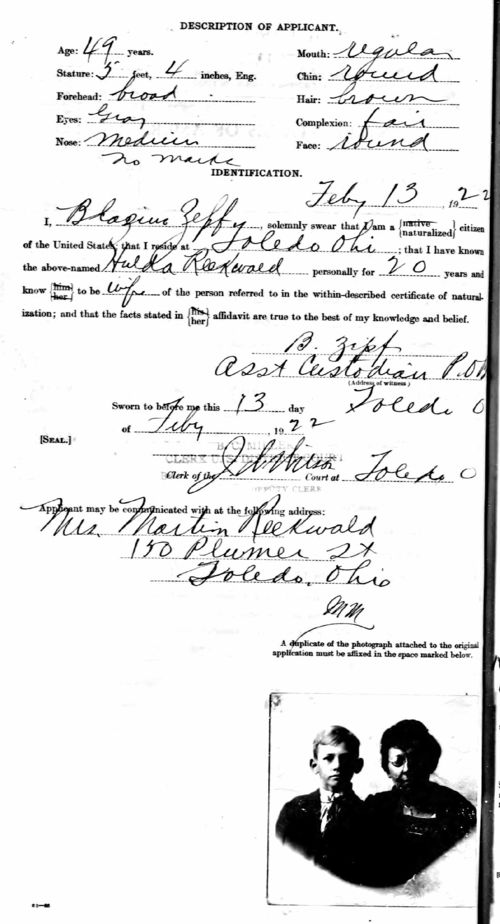 DESCRIPTION OF APPLICANT.
Age: 49 years. Mouth: regular
Stature: 5 feet, 4 inches, Eng. Chin: round
Forehead: broad Hair: brown
Eyes: Gray Complexion: fair
Nose: Medium Face: round
no marks
IDENTIFICATION.
Feby 13, 1922
I, solemnly swear that I am a {native naturalized} citizen
of the United States; that I reside at Toledo Ohi; that I have known
the above-named Hulda Reekwald personally for 20 years and
know {him her} to be wife of the person referred to in the within-described certificate of natural-
ization; and that the facts stated in {his her} affidavit are true to the best of my knowledge and belief.
B. Zipf
Asst Custodian P.O.
(Address of witness)
Toledo O
Sworn to before me this 13 day
of Feby, 1922
[SEAL.]
Clerk of the Court at Toledo O
DEPUTY CLERK
Applicant may be communicated with at the following address:
Mrs. Martin Reekwald
150 Plumer St
Toledo, Ohio
MM
A duplicate of the photograph attached to the original
application must be affixed in the space marked below.